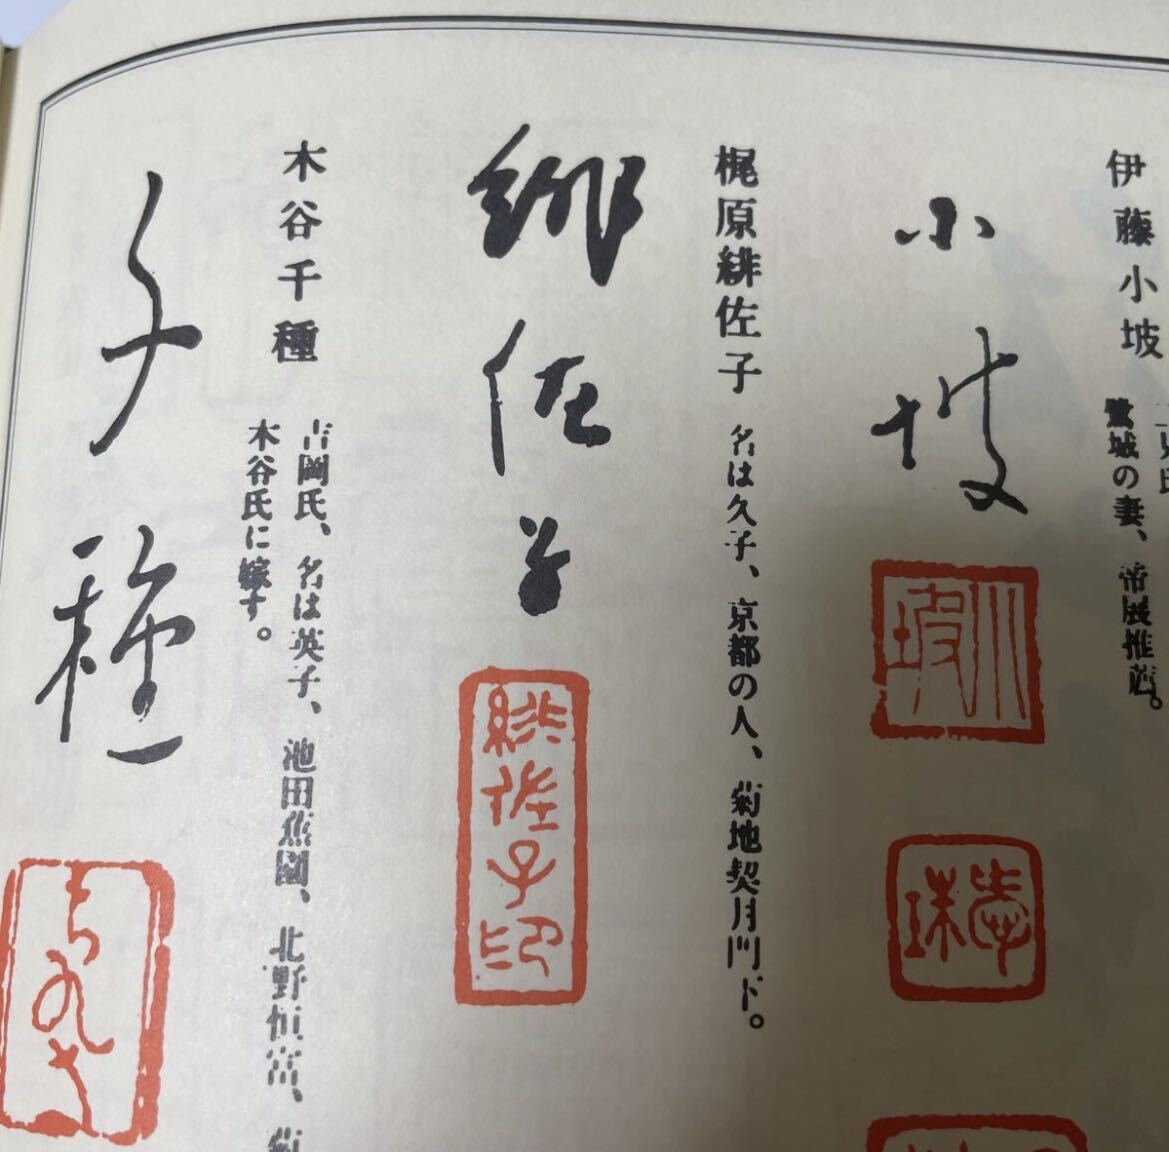 伊藤小坡
鷺城の妻、帝展推薦。
小坡
梶原緋佐子
名は久子、京都の人、菊地契月門下。
緋佐子
緋佐子印
木谷千種
吉岡氏、名は英子、池田蕉園、北野恒富、菊
木谷氏に嫁す。
千種
ちくさ